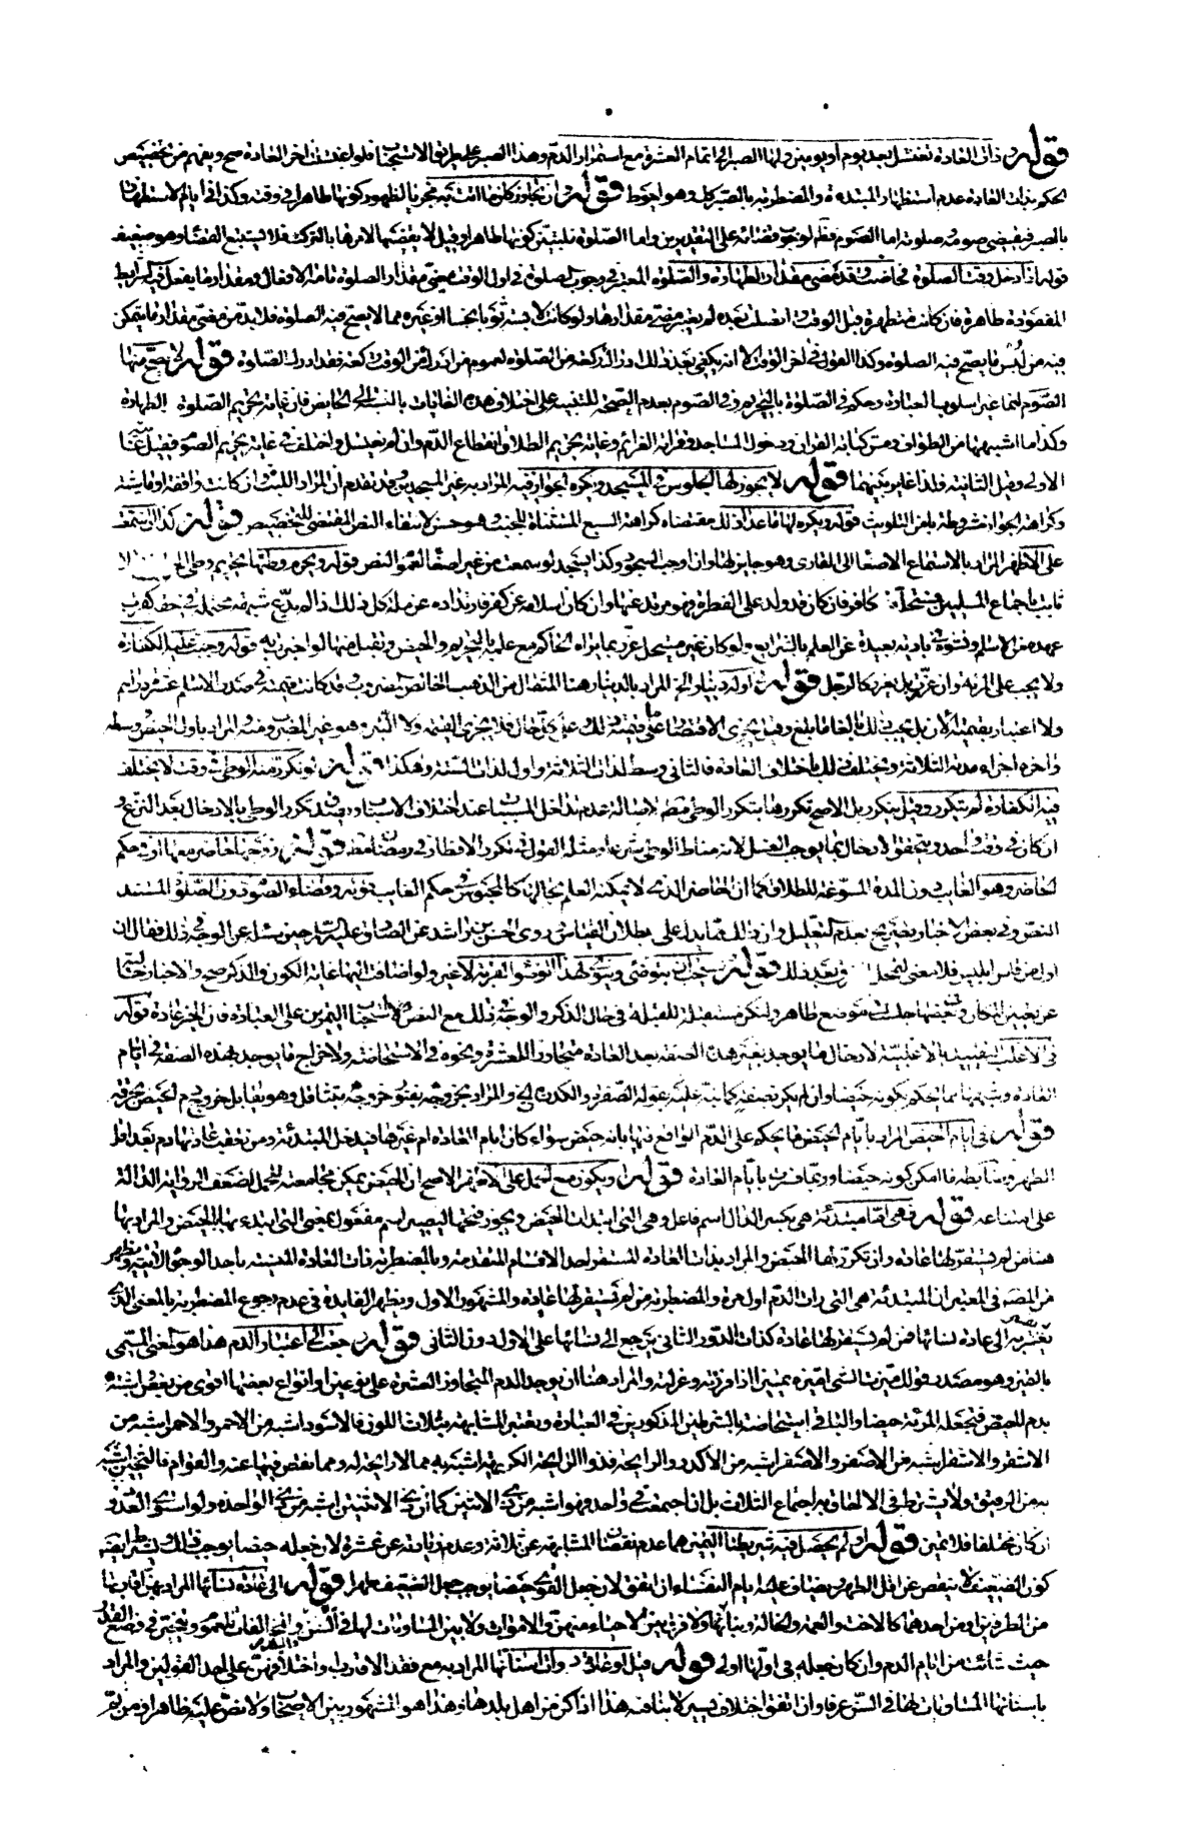 قوله وذات العادة تغتسل بعد يوم أو يومين ولها الصبر إلى تمام العشرة مع استمرار الدم وهذا الصبر على طريق الاستحباب فلو اغتسلت آخر العادة صح ويفهم من تخصيص
الحكم بذات العادة عدم استظهار المبتدءة والمضطربة بالصبر كل وهو أحوط قوله وإن تجاوز كان ما أتت به مجزيا لظهور كونها طاهرا في وقته وكذا في أيام الاستظهار
بالصبر فيقضي صومه وصلوته أما الصوم فظ لوجوب قضائه على التقديرين وأما الصلوة فلتبين كونها طاهرا وقيل لا يقضيها لأمرها بالترك فلا يستتبع القضاء وهو ضعيف
قوله إذا دخل وقت الصلوة فحاضت وقد مضى مقدار الطهارة والصلوة المعتبر في وجوب الصلوة في أول الوقت مضي مقدار الصلوة تامة الأفعال ومقدار ما يفعل فيه الشرائط
المفقودة طاهرة فإن كانت متطهرة قبل الوقت واتصلت بعده لم يعتبر مضي مقدارها ولو كانت لابسة ثوبا نجسا أو غيره مما لا يصح فيه الصلوة فلا بد من مضي مقدار ما يتمكن
فيه من لبس ما يصح فيه الصلوة وكذا القول في آخر الوقت إلا أنه يكفي بعد ذلك إدراك ركعة من الصلوة لعموم من أدرك من الوقت ركعة فقد أدرك الصلوة قوله لا يصح منها
الصوم إنما غير أسلوب العبادة وحكم في الصلوة بالتحريم وفي الصوم بعدم الصحة للتنبيه على اختلاف هذه الغايات بالنسبة إلى الحايض فإن غاية تحريم الصلوة الطهارة
وكذا ما أشبهها من الطواف ومس كتابة القران ودخول المساجد وقرائة العزائم وغاية تحريم الطلاق انقطاع الدم وإن لم تغتسل واختلف في غاية تحريم الصوم فقيل
الأولى وقيل الثانية فلذا غاير بينهما قوله لا يجوز لها الجلوس في المسجد ويكره الجواز فيه المراد به غير المسجدين وقد تقدم أن المراد اللبث وإن كانت واقفة أو ماشية
وكراهة الجواز مشروطة بأمن التلويث قوله ويكره لها ما عدا ذلك مقتضاه كراهة السبع المستثناة للجنب وهو حسن لانتفاء النص المقتضي للتخصيص قوله وكذا إن استمعت
على الأظهر المراد بالاستماع الإصغاء إلى القاري وهو جايز لها وإن وجب السجود وكذا يسجد لو سمعت من غير إصغاء لعموم النص قوله ويحرم وطئها تحريم وطي
ثابت بإجماع المسلمين مستحله كافر فإن كان قد ولد على الفطرة فهو مرتد عنها وإن كان إسلامه عن كفر فارتداده عن ملة كل ذلك إذا لم يدع شبهة محتملة في حقه كقرب
عهده من الإسلام ونشوه في بادية بعيدة عن العلم بالشرايع ولو كان غير مستحل عزر بما يراه الحاكم مع علمه بالتحريم والحيض ويقبل منها لو أخبرت به قوله وجب عليه الكفارة
ولا يجب على المرئة وإن عزرت بل تعزر كالرجل قوله في أوله دينار الخ المراد بالدينار هنا المثقال من الذهب الخالص المضروب وقد كانت قيمته في صدر الإسلام عشرة دراهم
ولا اعتبار بقيمته الآن بل يجب ذلك بالغا ما بلغ وقيل يجزي الاقتصار على قيمته وعلى كل حال فلا يجزي القيمة ولا التبر وهو غير المضروب منه والمراد بأول الحيض ووسطه
وآخره أجزاء مدته الثلاثة ويختلف ذلك باختلاف العادة فالثاني وسط لذات الثلاثة وأول لذات الستة وهكذا قوله لو تكرر منه الوطي في وقت لا يختلف
فيه الكفارة لم يتكرر وقيل يتكرر بل الأصح تكررها بتكرر الوطي مط لأصالة عدم تداخل المسببات عند اختلاف الأسباب ويصدق تكرر الوطي بالإدخال بعد النزع و
إن كان في وقت واحد ويتحقق الإدخال بما يوجب الغسل لأنه مناط الوطي شرعا ومثله القول في تكرر الإفطار في رمضان قوله وزوجها حاضر معها أو في حكم
الحاضر وهو الغائب دون المدة المسوغة للطلاق كما أن الحاضر الذي لا يمكنه العلم بحالها كالمحبوس في حكم الغايب قوله وقضاء الصوم دون الصلوة المستند
النص وفي بعض الأخبار تصريح بعدم التعليل وأن ذلك مما يدل على بطلان القياس روى الحسن بن راشد عن الصادق عليه السلام حين سئله عن الوجه في ذلك فقال إن
أول من قاس إبليس فلا معنى لتمحل في بعد ذلك قوله يستحب أن يتوضى وينوي بهذا التوضؤ القربة لا غير ولو أضافت إليها غاية الكون والذكر صح والأخبار خالية
عن تعيين المكان وفي بعضها جلست في موضع طاهر ولتكن مستقبلة للقبلة في حال الذكر والوجه في ذلك مع النص استحباب التمرين على العبادة فإن الخير عادة قوله
في الأغلب تقييده بالأغلبية لإدخال ما يوجد بغير هذه الصفة بعد العادة متجاوزا للعشرة ونحوه في الاستحاضة ولإخراج ما يوجد بهذه الصفة في أيام
العادة وشبهها مما يحكم بكونه حيضا وإن لم يكن بصفته كما نبه عليه بقوله الصفرة والكدرة الخ والمراد بخروجه بفتور خروجه بتثاقل وهو يقابل خروج دم الحيض بحرقة
قوله في أيام الحيض المراد بأيام الحيض ما يحكم على الدم الواقع فيها بأنه حيض سواء كان أيام العادة أم غيرها فيدخل المبتدئة ومن تعقبت عادتها دم بعد أقل
الطهر وضابطه ما أمكن كونه حيضا وربما فسرت بأيام العادة قوله ويكون مع الحمل على الأظهر الأصح أن الحيض يمكن مجامعته للحمل لضعف الرواية الدالة
على امتناعه قوله فهي إما مبتدئة هي بكسر الدال اسم فاعل وهي التي ابتدأت الحيض ويجوز فتحها ليصير اسم مفعول بمعنى التي ابتدء بها الحيض والمراد بها
هنا من لم يستقر لها عادة وإن تكرر لها الحيض والمراد بذات العادة المستقر لحد الأقسام المتقدمة وبالمضطربة ذات العادة المنسية بأحد الوجوه الآتية ويظهر
من المصنف في المعتبر أن المبتدئة هي التي رأت الدم أول مرة والمضطربة من لم تستقر لها عادة والمشهور الأول ويظهر الفايدة في عدم رجوع المضطربة بالمعنى الذي
يعتبره إلى عادة نسائها فمن لم يستقر لها عادة كذات الدور الثاني يرجع إلى نسائها على الأول دون الثاني قوله رجعت إلى اعتبار الدم هذا هو المعنى المسمى
بالتميز وهو مصدر قولك ميزت الشيء أميزه تمييزا إذا فرزته وعزلته والمراد هنا أن يوجد الدم المتجاوز العشرة على نوعين أو أنواع بعضها أقوى من بعض وأشبه
بدم الحيض فتجعله المرئة حيضا والباقي استحاضة بالشرطين المذكورين في العبارة ويعتبر المشابهة بثلاث اللون فالأسود أشبه من الأحمر والأحمر أشبه من
الأشقر والأشقر أشبه من الأصفر والأصفر أشبه من الأكدر والرايحة فذو الرايحة الكريهة أشبه مما لا رايحة له ومما نقص فيها عنه والقوام فالثخين أشبه
به من الرقيق ولا يشترط في الإلحاق به اجتماع الثلاث بل إن اجتمعت في واحد فهو أشبه من ذي الاثنين كما أن ذي الاثنين أشبه من ذي الواحدة ولو استوى العدد و
إن كان مختلفا فلا تميز قوله ولم يحصل فيه شريطتا التميز هما عدم نقصان المشابه عن ثلاثة وعدم زيادته عن عشرة لأن جعله حيضا يوجب ذلك ويشترط أيضا
كون الضعيف لا ينقص عن أقل الطهر ويضاف إليه أيام النقاء إن اتفق لأن جعل القوي حيضا يوجب جعل الضعيف طهرا قوله إلى عادة نسائها المراد بهن أقاربها
من الطرفين أو من أحدهما كالأخت والعمة والخالة وبناتها ولا فرق بين الأحياء منهن والأموات ولا بين المساويات لها في السن وتتخير في وضع العدد
حيث شائت من أيام الدم وإن كان جعله في أولها أولى قوله وقيل أو عادة ذوات أسنانها المراد به مع فقد الأقارب واختلافهن على أحد القولين والمراد
بأسنانها المساويات لها في السن عرفا وإن اتفق اختلاف يسير لا ينافيه هذا إذا كن من أهل بلدها وهذا هو المشهور بين الأصحاب ولا نص عليه ظاهرا ومن ثم